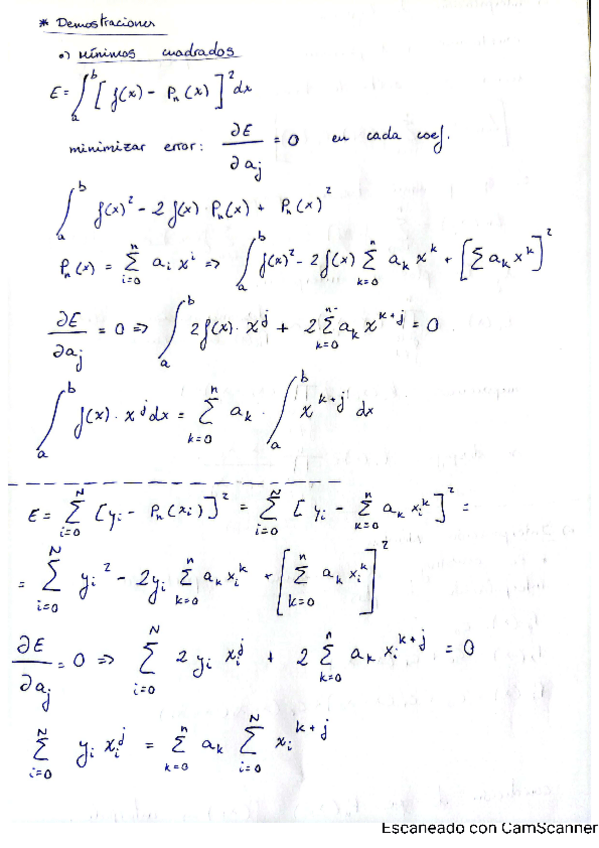 * Demostraciones
•) Mínimos cuadrados
E = ∫_a^b [f(x) - Pₙ(x)]² dx
minimizar error: ∂E/∂aⱼ = 0 en cada coef.
∫_a^b f(x)² - 2 f(x) · Pₙ(x) + Pₙ(x)²
Pₙ(x) = Σ_{i=0}^n aᵢ xⁱ => ∫_a^b f(x)² - 2f(x) Σ_{k=0}^n aₖ xᵏ + [Σ aₖ xᵏ]²
∂E/∂aⱼ = 0 => ∫_a^b 2f(x) · xʲ + 2 Σ_{k=0}^n aₖ x^{k+j} = 0
∫_a^b f(x) · xʲ dx = Σ_{k=0}^n aₖ · ∫_a^b x^{k+j} dx
E = Σ_{i=0}^N [yᵢ - Pₙ(xᵢ)]² = Σ_{i=0}^N [yᵢ - Σ_{k=0}^n aₖ xᵢᵏ]² =
= Σ_{i=0}^N yᵢ² - 2yᵢ Σ_{k=0}^n aₖ xᵢᵏ + [Σ_{k=0}^n aₖ xᵢᵏ]²
∂E/∂aⱼ = 0 => Σ_{i=0}^N 2 yᵢ xᵢʲ + 2 Σ_{k=0}^n aₖ xᵢ^{k+j} = 0
Σ_{i=0}^N yᵢ xᵢʲ = Σ_{k=0}^n aₖ Σ_{i=0}^N xᵢ^{k+j}
Escaneado con CamScanner